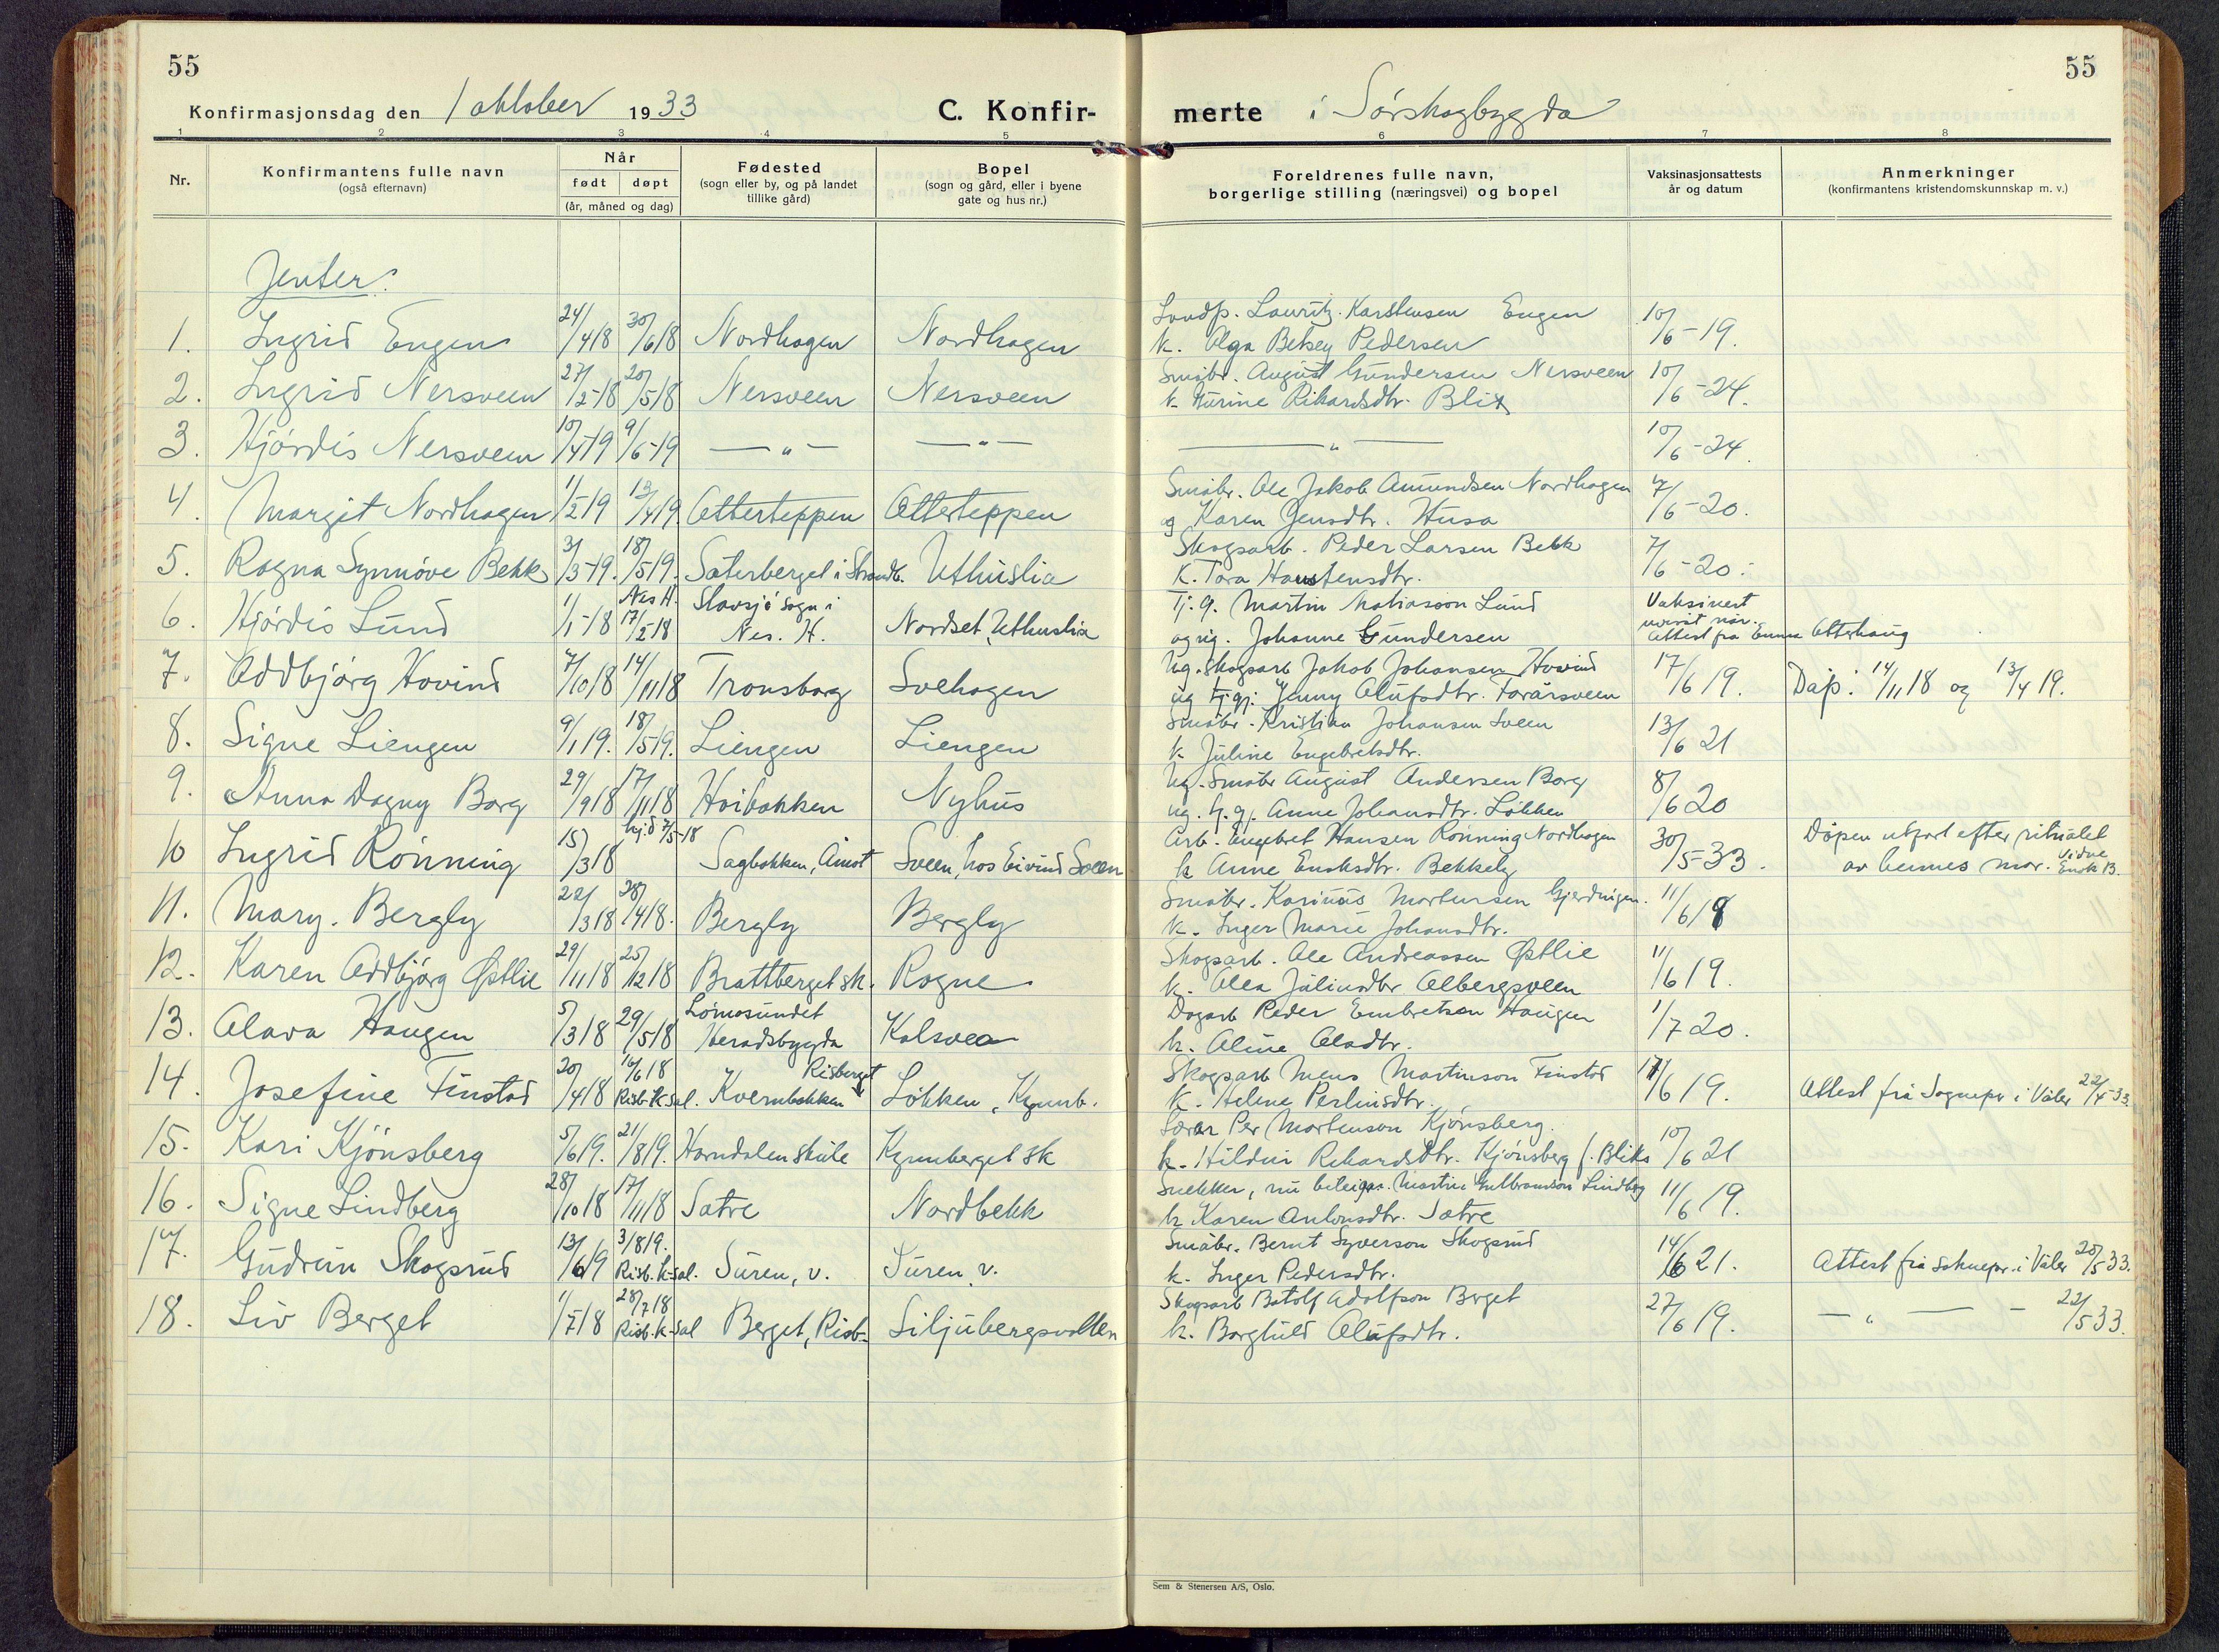 55
Konfirmasjonsdag den 1 oktober 1933
C. Konfir-
merte i Sørskogbygda
55
1 2 3 4 5 6 7 8
Nr.
Konfirmantens fulle navn
(også efternavn)
Når
født døpt
(år, måned og dag)
Fødested
(sogn eller by, og på landet
tillike gård)
Bopel
(sogn og gård, eller i byene
gate og hus nr.)
Foreldrenes fulle navn,
borgerlige stilling (næringsvei) og bopel
Vaksinasjonsattests
år og datum
Anmerkninger
(konfirmantens kristendomskunnskap m. v.)
Jenter:
1. Ingrid Engen 24/4 18 30/6 18 Nordhagen Nordhagen
Landp. Lauritz Karstensen Engen
k. Olga Betsey Pedersen 10/6-19.
2. Ingrid Nersveen 27/2-18 20/5 18 Nersveen Nersveen
Småbr. August Gundersen Nersveen
k. Rikardsdtr. Blix 10/6-24.
3. Hjördis Nersveen 10/4 19 9/6-19 — " — — " —
— " — 10/6-24.
4. Margit Nordhagen 1/2 19 13/4 19 Otterteppen Otterteppen
Småbr. Ole Jakob Amundsen Nordhagen
og Karen Jensdtr. Husa 7/6-20.
5. Ragna Synnöve Bekk 3/3-19. 18/5 19. Säterberget i Strandb. Uthuslia
Skogsarb. Peder Larsen Bekk
k. Tora Haustensdtr. 7/6-20.
6. Hjördis Lund 1/1-18 Nes H. 17/2 18 Stavsjö sogn i
Nes. H. Nordset, Uthuslia
Tj. g. Martin Matiasson Lund
og ug. Johanne Gundersen Vaksinert
uvisst når.
Attest fra Emma Otterhaug
7. Oddbjörg Hovind 7/10 18 14/11 18 Tronsborg Svehagen
Ug. skogsarb Jakob Johansen Hovind
ug tj. gj. Jenny Olufsdtr. Torärsveen 17/6 19. Döp: 14/11 18 og 13/4 19.
8. Signe Liengen 9/1 19. 18/5 19. Liengen Liengen
Småbr. Kristian Johansen Sveen
k. Juline Engebretsdtr. 13/6 21
9. Anna Dagny Borg 29/9 18 17/11 18 Hoibakken Nyhus
Ug. Småbr August Andersen Borg
ug. tj. gj. Anne Johansdtr. Lökken 8/6 20
10 Ingrid Rönning 15/3 18 hj.d 7/5-18 Sagbakken, Åmot Sveen, hos Eivind Sveen
Arb. Engebret Hansen Rönning Nordhagen
k Anne Enoksdtr. Bekkely 30/5-33. Döpen utfört efter ritualet
av hennes mor. Vidne
Enok B.
11. Mary. Bergly 22/3 18 28/4 18. Bergly Bergly
Småbr. Karinus Mortensen Gjerdingen.
k. Inger Marie Johansdtr. 11/6 18
12. Karen Oddbjörg Østlie 29/11 18 25/12 18 Brattberget sk. Rogne
Skogsarb. Ole Andreassen Østlie
k. Olea Julinsdtr Olbergsveen 11/6 19.
13. Olava Haugen 5/3 18 29/5 18 Lömosundet
Heradsbygda Kolsvea
Dagarb Peder Embretsen Haugen
k. Oline Olsdtr. 1/7 20.
14. Josefine Finstad 20/4 18 16/6 18
Risb. k-sal. Kvernbekken Risberget Lökken, Kynnb.
Skogsarb Mens Martinson Finstad
k. Helene Perlinsdtr. 17/6 19. Attest frå Sognepr i Våler 22/4-33.
15. Kari Kjönsberg 5/6 19. 21/8 19. Horndalen skule Kynnberget sk
Lærer Per Mortenson Kjönsberg.
k. Hildur Rikardsdtr. Kjönsberg f. Bliks 10/6 21
16. Signe Lindberg 28/10 18 17/11 18 Sätre Nordbekk
Snekker, nu Martin Gulbrandson Lindberg
k Karen Antonsdtr. Sätre 11/6 19.
17. Gudrun Skogsrud 13/6 19 3/8 19.
Risb. k-sal. Suren, v. Suren, v.
Småbr. Bernt Syverson Skogsrud
k. Inger Pedersdtr. 14/6 21. Attest frå soknepr. i Våler 20/5 33.
18. Liv Berget 1/7 18 28/7 18
Risb. k-sal Berget, Risb. Siljubergsvollen
Skogsarb Botolf Adolfson Berget
k. Borghild Olufsdtr. 27/6 19. — " — — 22/5 33.
Sem & Stenersen A/S, Oslo.